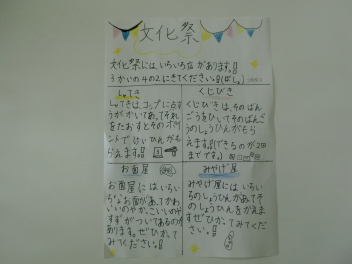 文化祭
文化祭にはいろいろながあります。!!
3かいの4の2にきてください。!!(ばしょ)
しゃてき
しゃてきは、コップに点す
うがかいてあってそれ
をたおすとそのポイ
ントでけいひんがもら
えます!!
くじびき
くじびきは、そのばん
ごうをひいてそのばんご
うのしょうひんがもら
えます!!(できるのが2回
までです。)
お面屋
お面屋にはいろい
ろなお面があってかわ
いいのや、こいいのや
すずがついてあるのが
あります。ぜひかって
みてください。!!
みやげ屋
みやげ屋にはいろい
ろのしょうひんがあって
そのしょうひんをかえま
すぜひかってみてくださ
い。!!